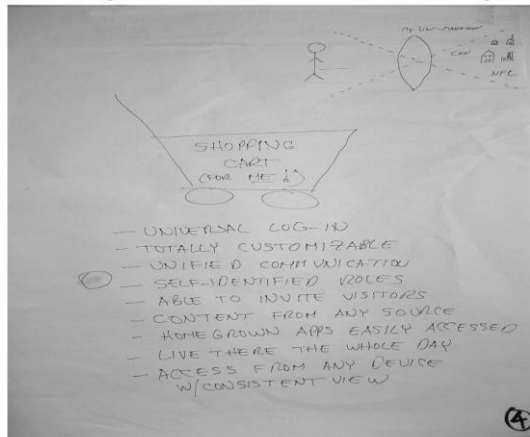 My UW-MADISON
NFC
SHOPPING
CART
(FOR ME!!)
— UNIVERSAL LOG-IN
— TOTALLY CUSTOMIZABLE
— UNIFIED COMMUNICATION
— SELF-IDENTIFIED ROLES
— ABLE TO INVITE VISITORS
— CONTENT FROM ANY SOURCE
— HOMEGROWN APPS EASILY ACCESSED
— LIVE THERE THE WHOLE DAY
— ACCESS FROM ANY DEVICE
W/CONSISTENT VIEW
4